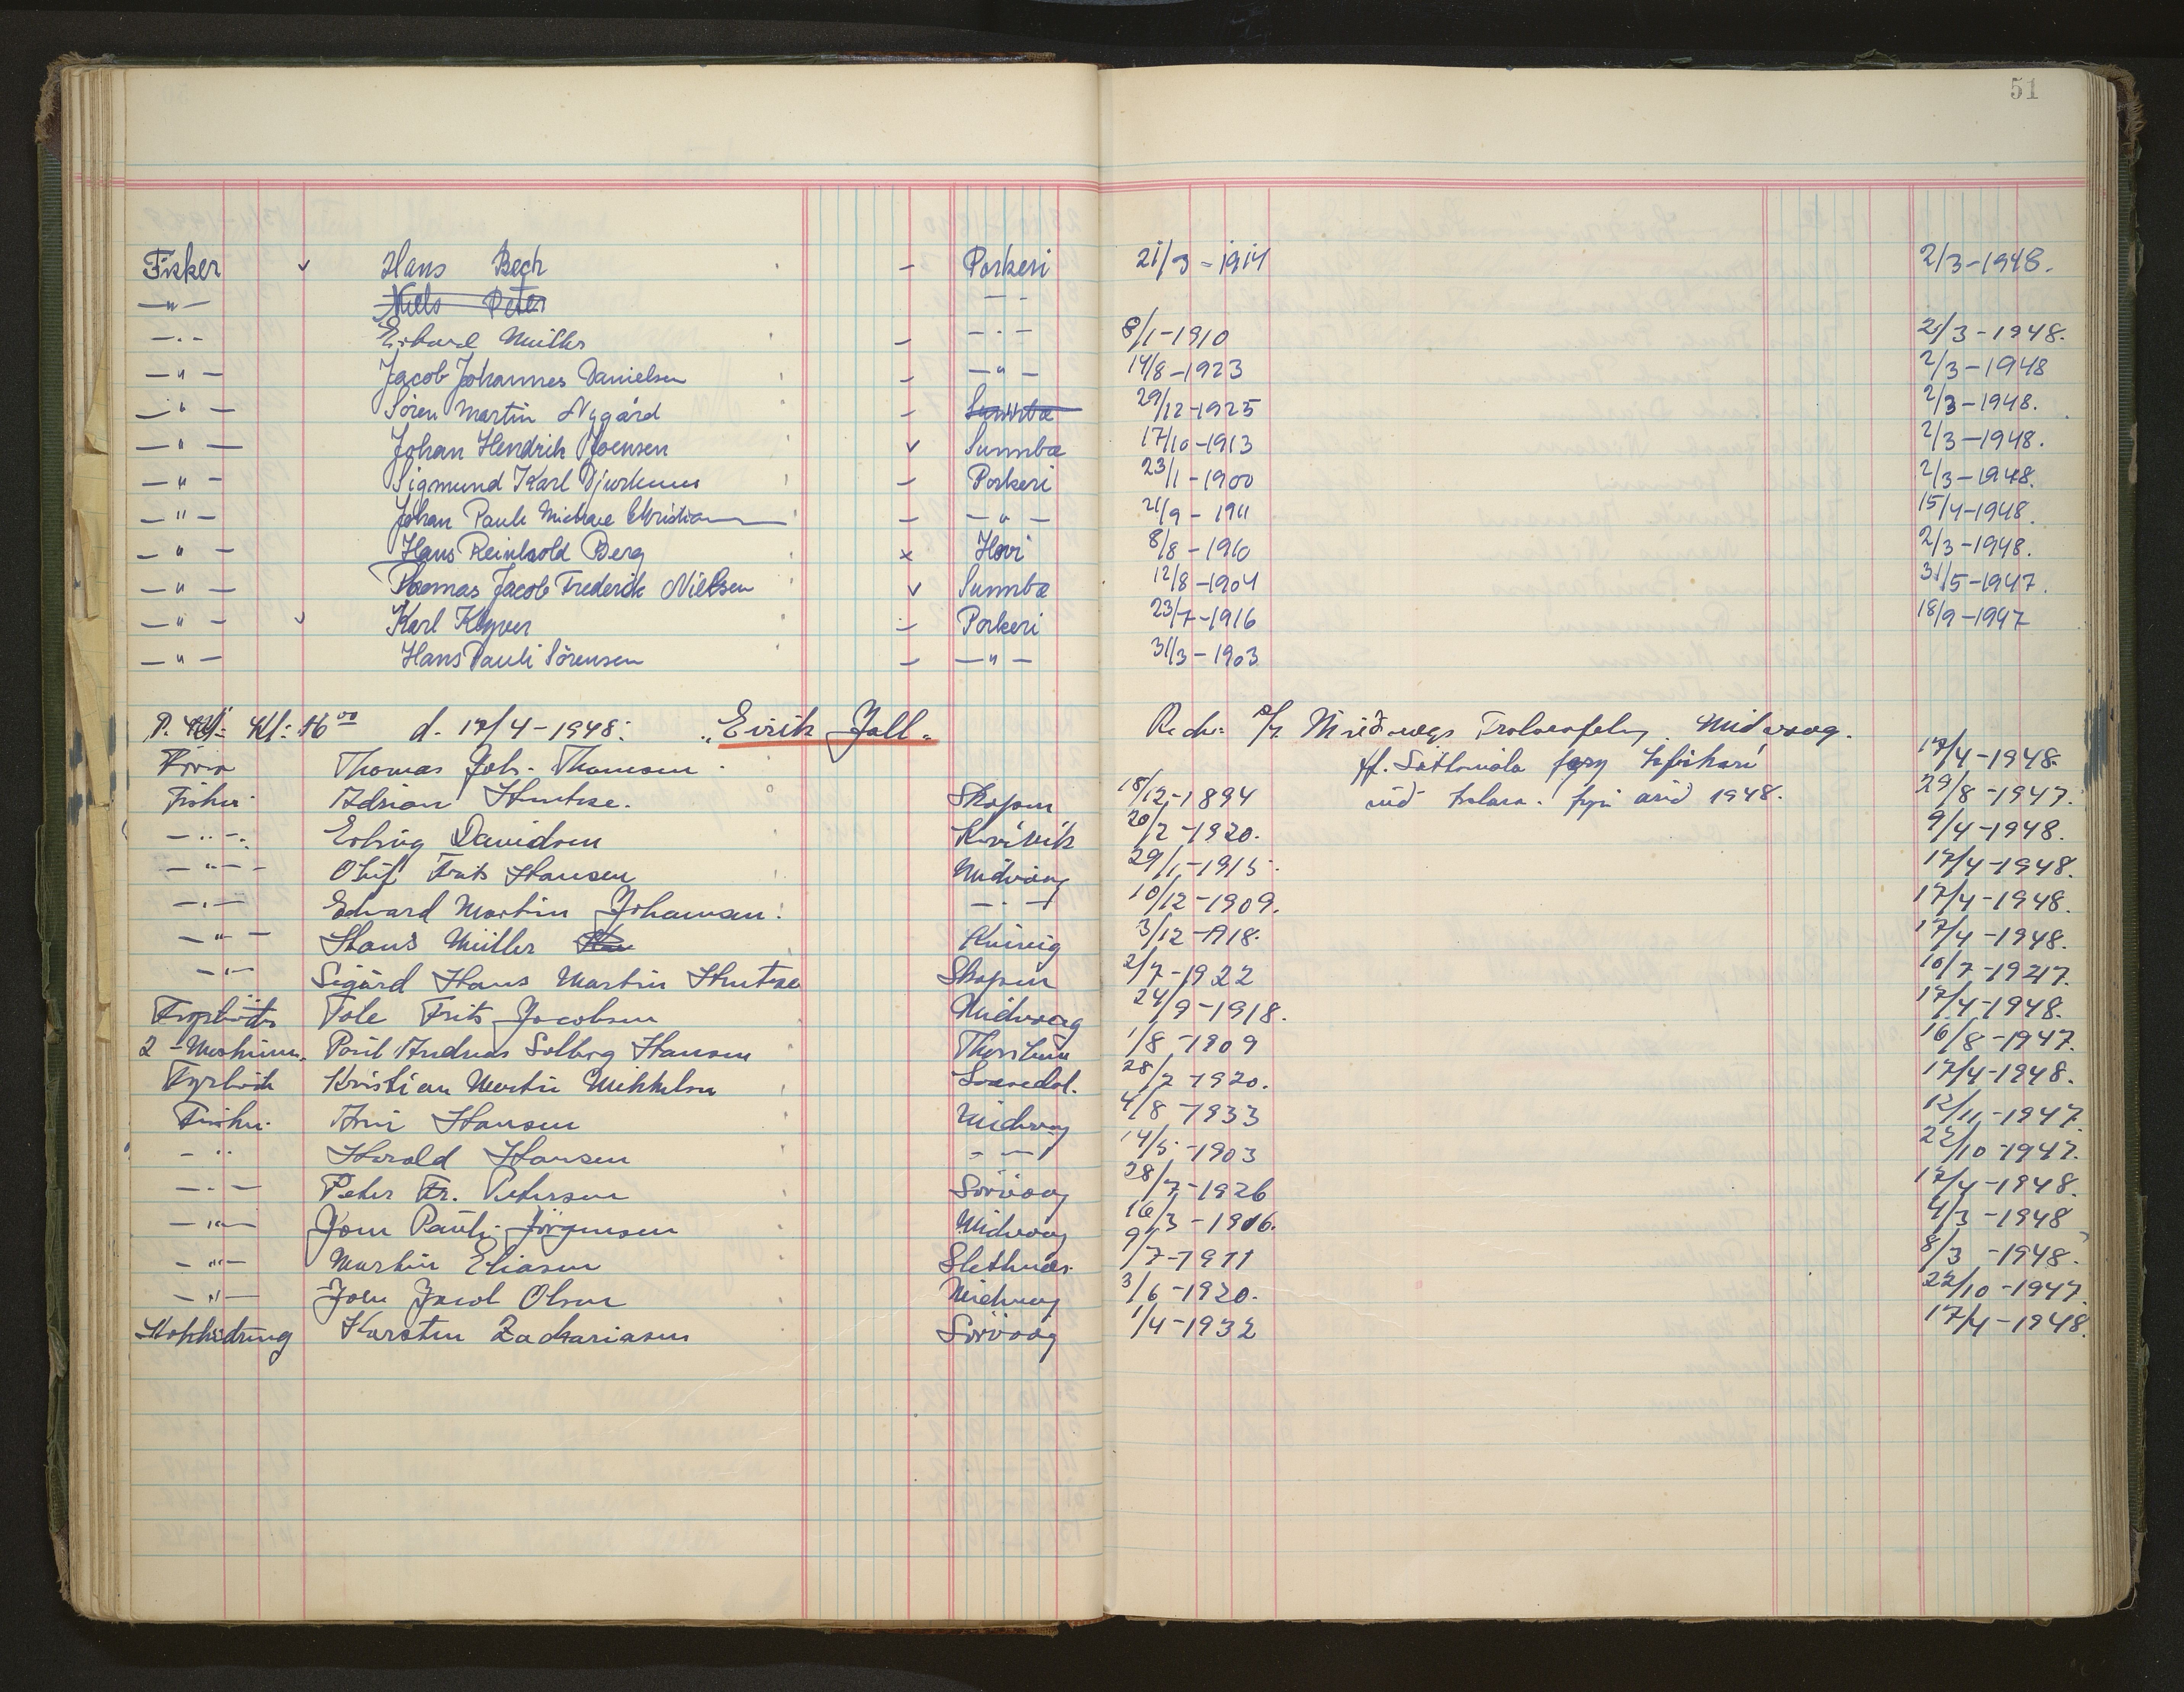 51
Fisker v Hans Bech – Porkeri 21/3-1914 2/3-1948.
—"— Niels Peter – –
–·– Erhard Müller – –·– 8/1-1910 2/3-1948.
—"— Jacob Johannes Danielsen – —"— 14/8-1923 2/3-1948
—"— Sören Martin Nygárd – Sumba 29/12-1925 2/3-1948.
—"— Johan Hendrik Joensen v Sumba 17/10-1913 2/3-1948.
—"— Sigmund Karl Djurhuus – Porkeri 23/1-1900 2/3-1948.
—"— Johan Pauli Michael Christian – —"— 21/9-1911 15/4-1948.
—"— Hans Reinhold Berg x Hovi 8/8-1910 2/3-1948.
—"— Thomas Jacob Frederik Nielsen v Sumba 12/8-1904 31/5-1947.
—"— v Karl Kjyver – Porkeri 23/7-1916 18/9-1947
—"— Hans Pauli Sörensen – —"— 31/3-1903
Kl: 16 00 d. 17/4-1948: "Eirik Jall" Midvaag.
Thomas Joh. Thomsen 17/4-1948.
Fisker Adrian Hentze. Skopun 18/12-1894 arið 1948. 29/8-1947.
–··–· Erling Davidsen Kvívik 20/2-1920. 9/4-1948.
–"–– Oluf Frits Hansen Midvaag 29/1-1915. 17/4-1948.
–·– Edvard Martin Johannesen. –·– 10/12-1909. 17/4-1948.
–"– Hans Müller 3/12-1918. 17/4-1948.
–"– Sigurd Hans Martin Hentze Skopun 2/7-1922 10/7-1947.
Fyrböter Tole Frits Jacobsen Midvaag 24/9-1918. 17/4-1948.
2-Meskinm. Poul Andreas Solberg Hansen Thorshavn 1/8-1909 16/8-1947.
Fyrböter Kristian Martin Mikkelsen 28/2-1920. 17/4-1948.
Fisker Hansen Midvaag 4/8-1933 12/11-1947.
–·· Harald Hansen –·– 14/5-1903 22/10-1947.
–·– Peter Fr. Petersen Sörvaag 28/7-1926 17/4-1948.
–"– Jóan Pauli Jörgensen Midvaag 16/3-1916. 4/3-1948
–"– Martin Eliasen Slettnæs 9/7-1911 8/3-1948.
–"– Jacob Olsen Midvaag 3/6-1920. 22/10-1947.
Kokkadrong Karsten Zachariasen Sörvaag 1/4-1932 17/4-1948.